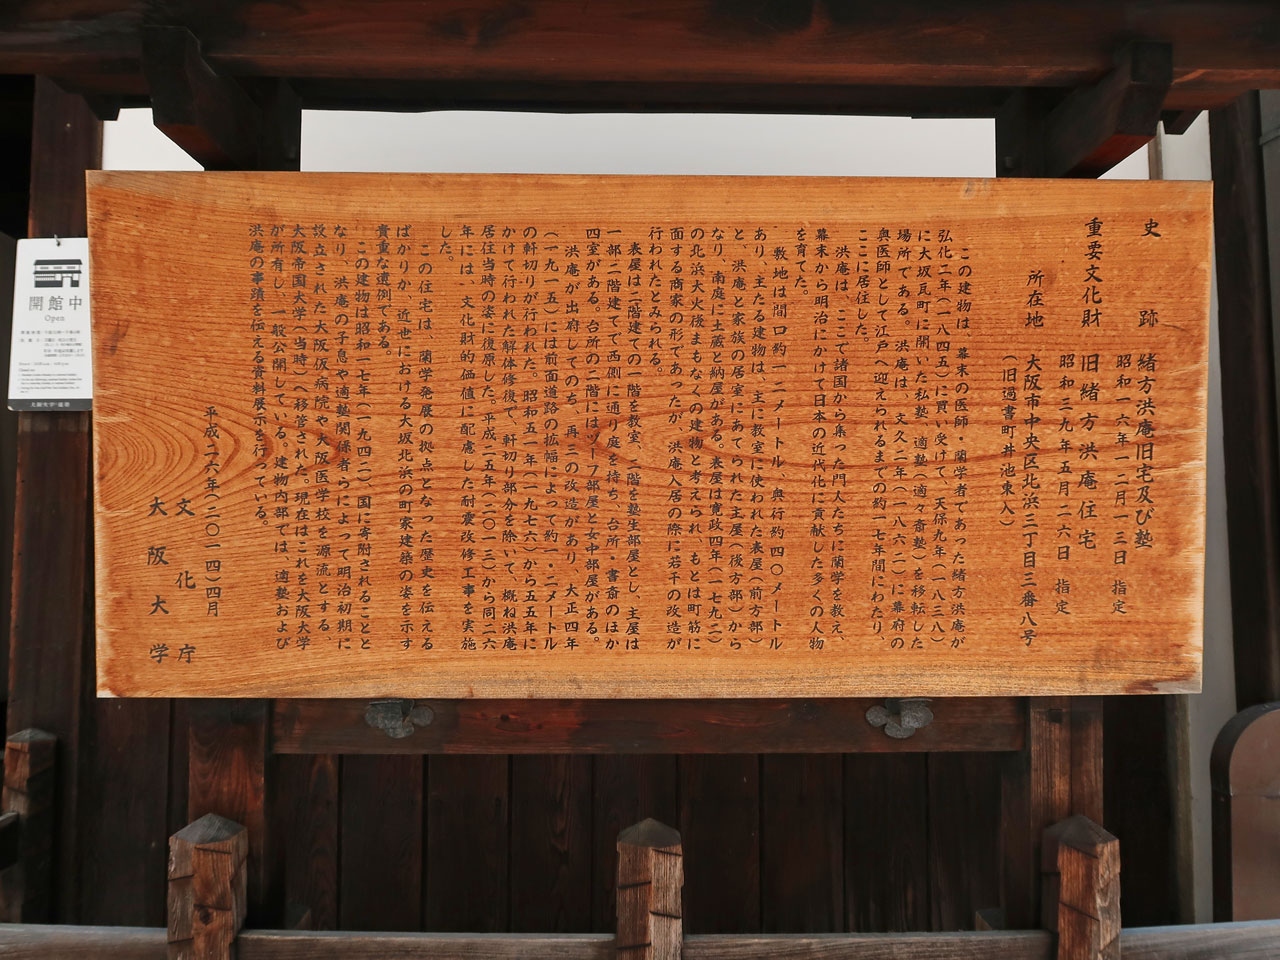 史跡 緒方洪庵旧宅及び塾
昭和一六年一二月一三日 指定
重要文化財 旧緒方洪庵住宅
昭和三九年五月二六日 指定
所在地 大阪市中央区北浜三丁目三番八号
(旧過書町井池東入)
この建物は、幕末の医師・蘭学者であった緒方洪庵が
弘化二年(一八四五)に買い受けて、天保九年(一八三八)
に大坂瓦町に開いた私塾、適塾(適々斎塾)を移転した
場所である。洪庵は、文久二年(一八六二)に幕府の
奥医師として江戸へ迎えられるまでの約一七年間にわたり、
ここに居住した。
洪庵は、ここで諸国から集った門人たちに蘭学を教え、
幕末から明治にかけて日本の近代化に貢献した多くの人物
を育てた。
敷地は間口約一二メートル、奥行約四〇メートル
あり、主たる建物は、主に教室に使われた表屋(前方部)
と、洪庵と家族の居室にあてられた主屋(後方部)から
なり、南庭に土蔵と納屋がある。表屋は寛政四年(一七九二)
の北浜大火後まもなくの建物と考えられ、もとは町筋に
面する商家の形であったが、洪庵入居の際に若干の改造が
行われたとみられる。
表屋は二階建ての一階を教室、二階を塾生部屋とし、主屋は
一部二階建てで西側に通り庭を持ち、台所・書斎のほか
四室がある。台所の二階にはヅーフ部屋と女中部屋がある。
洪庵が出府してのち、再三の改造があり、大正四年
(一九一五)には前面道路の拡幅によって約一・二メートル
の軒切りが行われた。昭和五一年(一九七六)から五五年に
かけて行われた解体修復で、軒切り部分を除いて、概ね洪庵
居住当時の姿に復原した。平成二五年(二〇一三)から同二六
年には、文化財的価値に配慮した耐震改修工事を実施
した。
この住宅は、蘭学発展の拠点となった歴史を伝える
ばかりか、近世における大坂北浜の町家建築の姿を示す
貴重な遺例である。
この建物は昭和一七年(一九四二)、国に寄附されることと
なり、洪庵の子息や適塾関係者らによって明治初期に
設立された大阪仮病院や大阪医学校を源流とする、
大阪帝国大学(当時)へ移管された。現在はこれを大阪大学
が所有し、一般公開している。建物内部では、適塾および
洪庵の事蹟を伝える資料展示を行っている。
平成二六年(二〇一四)四月
文化庁
大阪大学
開館中
Open
大阪大学・適塾